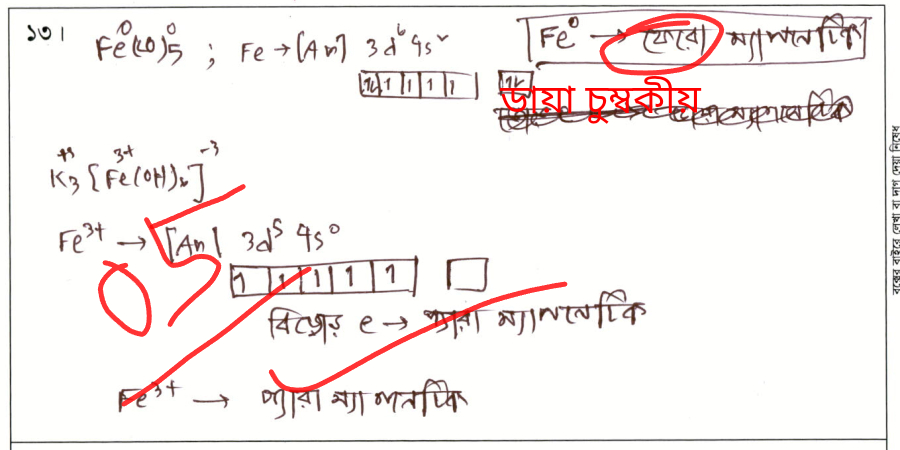 ১৩। Fe(CO)5 ; Fe → [Ar] 3d⁶ 4s² Fe⁰ → ফেরো ম্যাগনেটিক
1L 1 1 1 1 1L
ডায়া চুম্বকীয়
K3 [Fe(OH)6]⁻³
Fe³⁺ → [Ar] 3d⁵ 4s⁰
1 1 1 1 1
05
বিজোড় e → প্যারা ম্যাগনেটিক
Fe³⁺ → প্যারা ম্যাগনেটিক
বক্সের বাইরে লেখা বা দাগ দেয়া নিষেধ